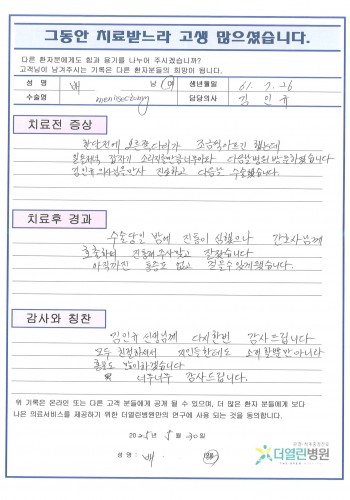 그동안 치료받느라 고생 많으셨습니다.
다른 환자분에게도 힘과 용기를 나누어 주시겠습니까?
고객님이 남겨주시는 기록은 다른 환자분들의 희망이 됩니다.
성 명 배 남 / 여 생년월일 61. 7. 26
수술명 menisectomy 담당의사 김인규
치료전 증상
한달전에 오른쪽다리가 조금씩아프긴 했는데
갑자기 소리지를만큼너무아파 다음날병원 방문하였습니다
김인규의사선생님 진료하고 다음날 수술했습니다
치료후 경과
수술당일 밤에 진통이 심했으나 간호사님께
호출하여 진통제주사맞고 잘잤습니다
아직까진 통증도 없고 걸을수있게됐습니다
감사와 칭찬
김인규선생님께 다시한번 감사드립니다
모두 친절하셔서 지인들한테도 소개할뿐만아니라
홍보도 많이하겠습니다
너무너무 감사드립니다.
위 기록은 온라인 또는 다른 고객 분들에게 공개 될 수 있으며, 더 많은 환자 분들에게 보다
나은 의료서비스를 제공하기 위한 더열린병원만의 연구에 사용 되는 것을 동의합니다.
2025년 5월 30일
성 명 : 배
더열린병원